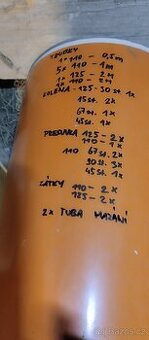 TRUBKY
1x 110 - 0,5m
5x 110 - 1m
1x 125 - 2m
1x 110 - 2m
KOLENA - 125 - 30st 1x
15st. 2x
67st. 1x
45st. 1x
PŘECHODKA 125 - 2x
110 - 1x
110 67st 2x
30st. 3x
45st 1x
ZÁTKY 110 - 2x
125 - 2x
2x TUBA MAZÁNÍ
bazos.cz